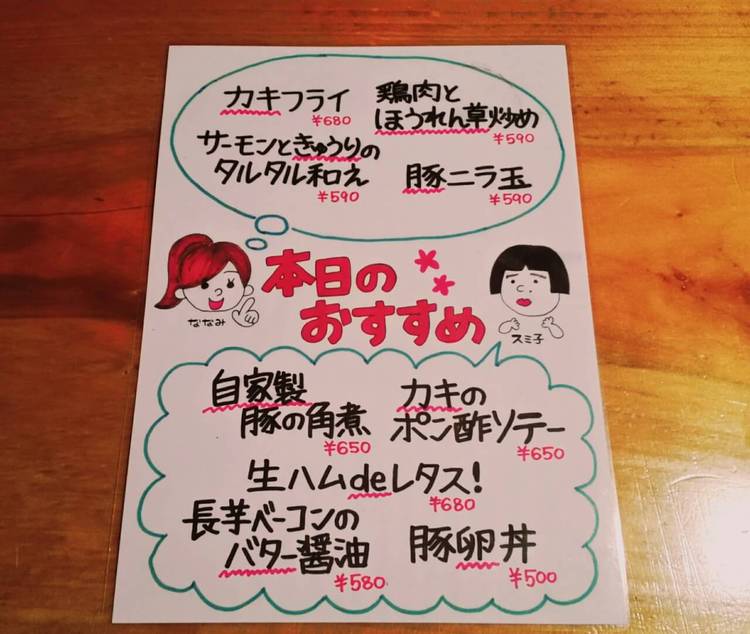 カキフライ
¥680
鶏肉と
ほうれん草炒め
¥590
サーモンときゅうりの
タルタル和え
¥590
豚ニラ玉
¥590
本日の
おすすめ
ななみ
スミ子
自家製
豚の角煮
¥650
カキの
ポン酢ソテー
¥650
生ハムdeレタス!
¥680
長芋ベーコンの
バター醤油
¥580
豚卵丼
¥500